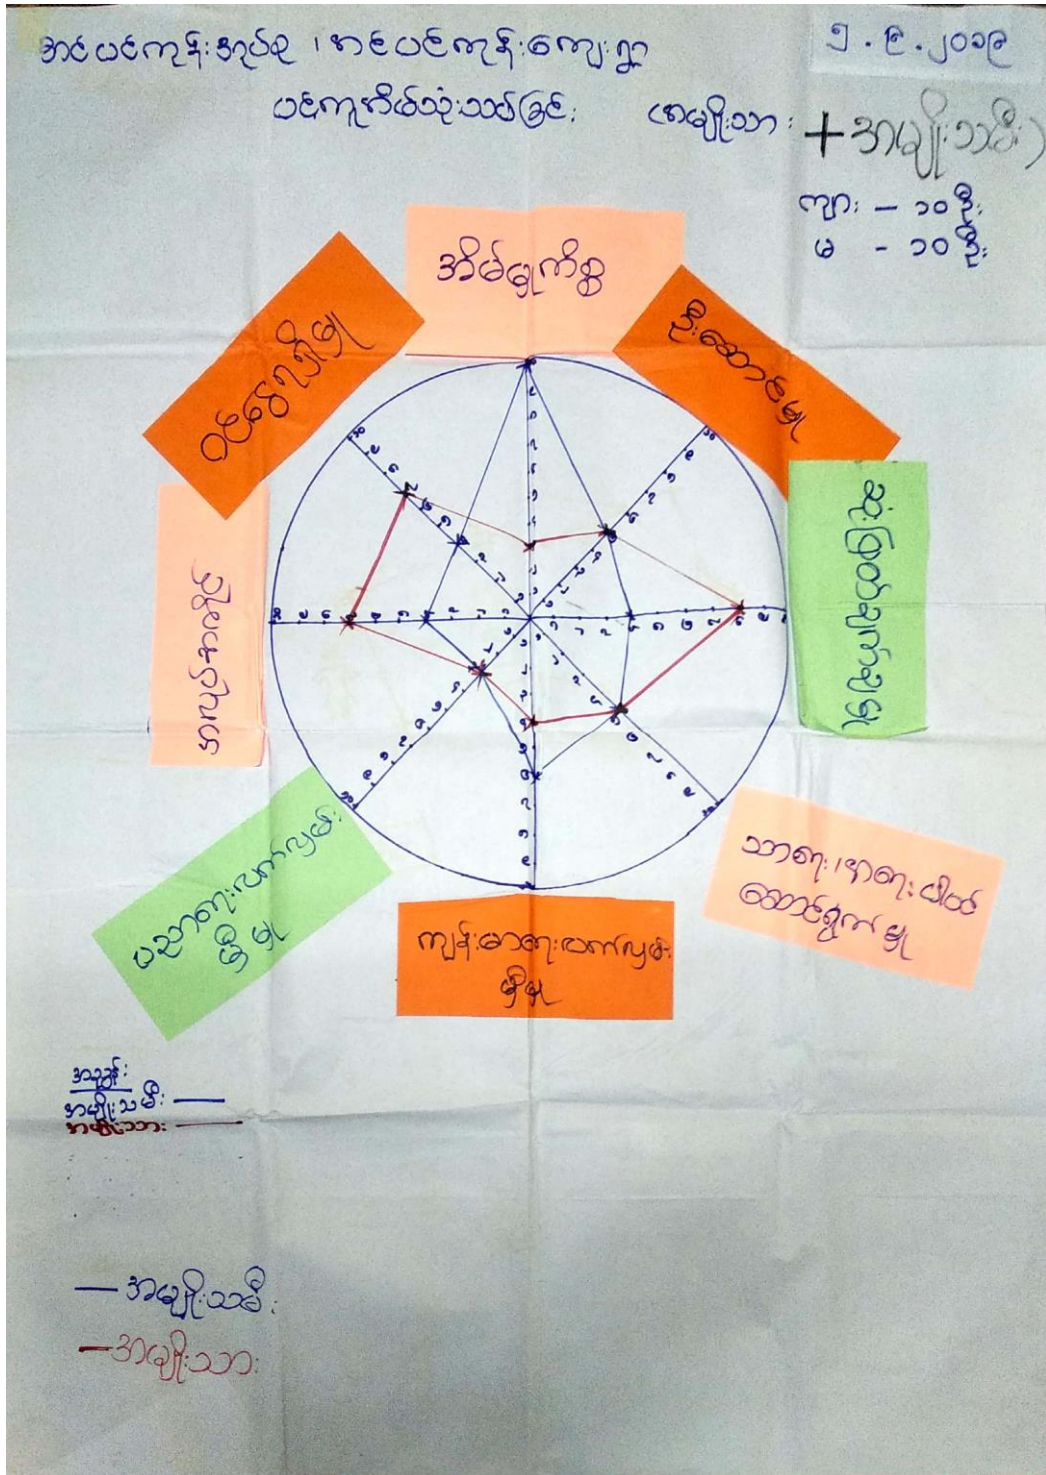 အင်ပင်ကုန်းအုပ်စု ၊ အင်ပင်ကုန်းကျေးရွာ
၅.၉.၂၀၁၉
ပင့်ကူအိမ်သုံးသပ်ခြင်း (အမျိုးသား + အမျိုးသမီး)
ကျား - ၁၀ဦး
မ - ၁၀ဦး
အိမ်မှုကိစ္စ
ဦးဆောင်မှု
ဝင်ငွေရရှိမှု
ဆုံးဖြတ်ချက်ချမှု
သာရေး၊နာရေး ပါဝင်
ဆောင်ရွက်မှု
ကျန်းမာရေးလက်လှမ်း
မှီမှု
ပညာရေးလက်လှမ်း
မှီမှု
အညွှန်း
အမျိုးသမီး —
အမျိုးသား —
— အမျိုးသမီး
— အမျိုးသား